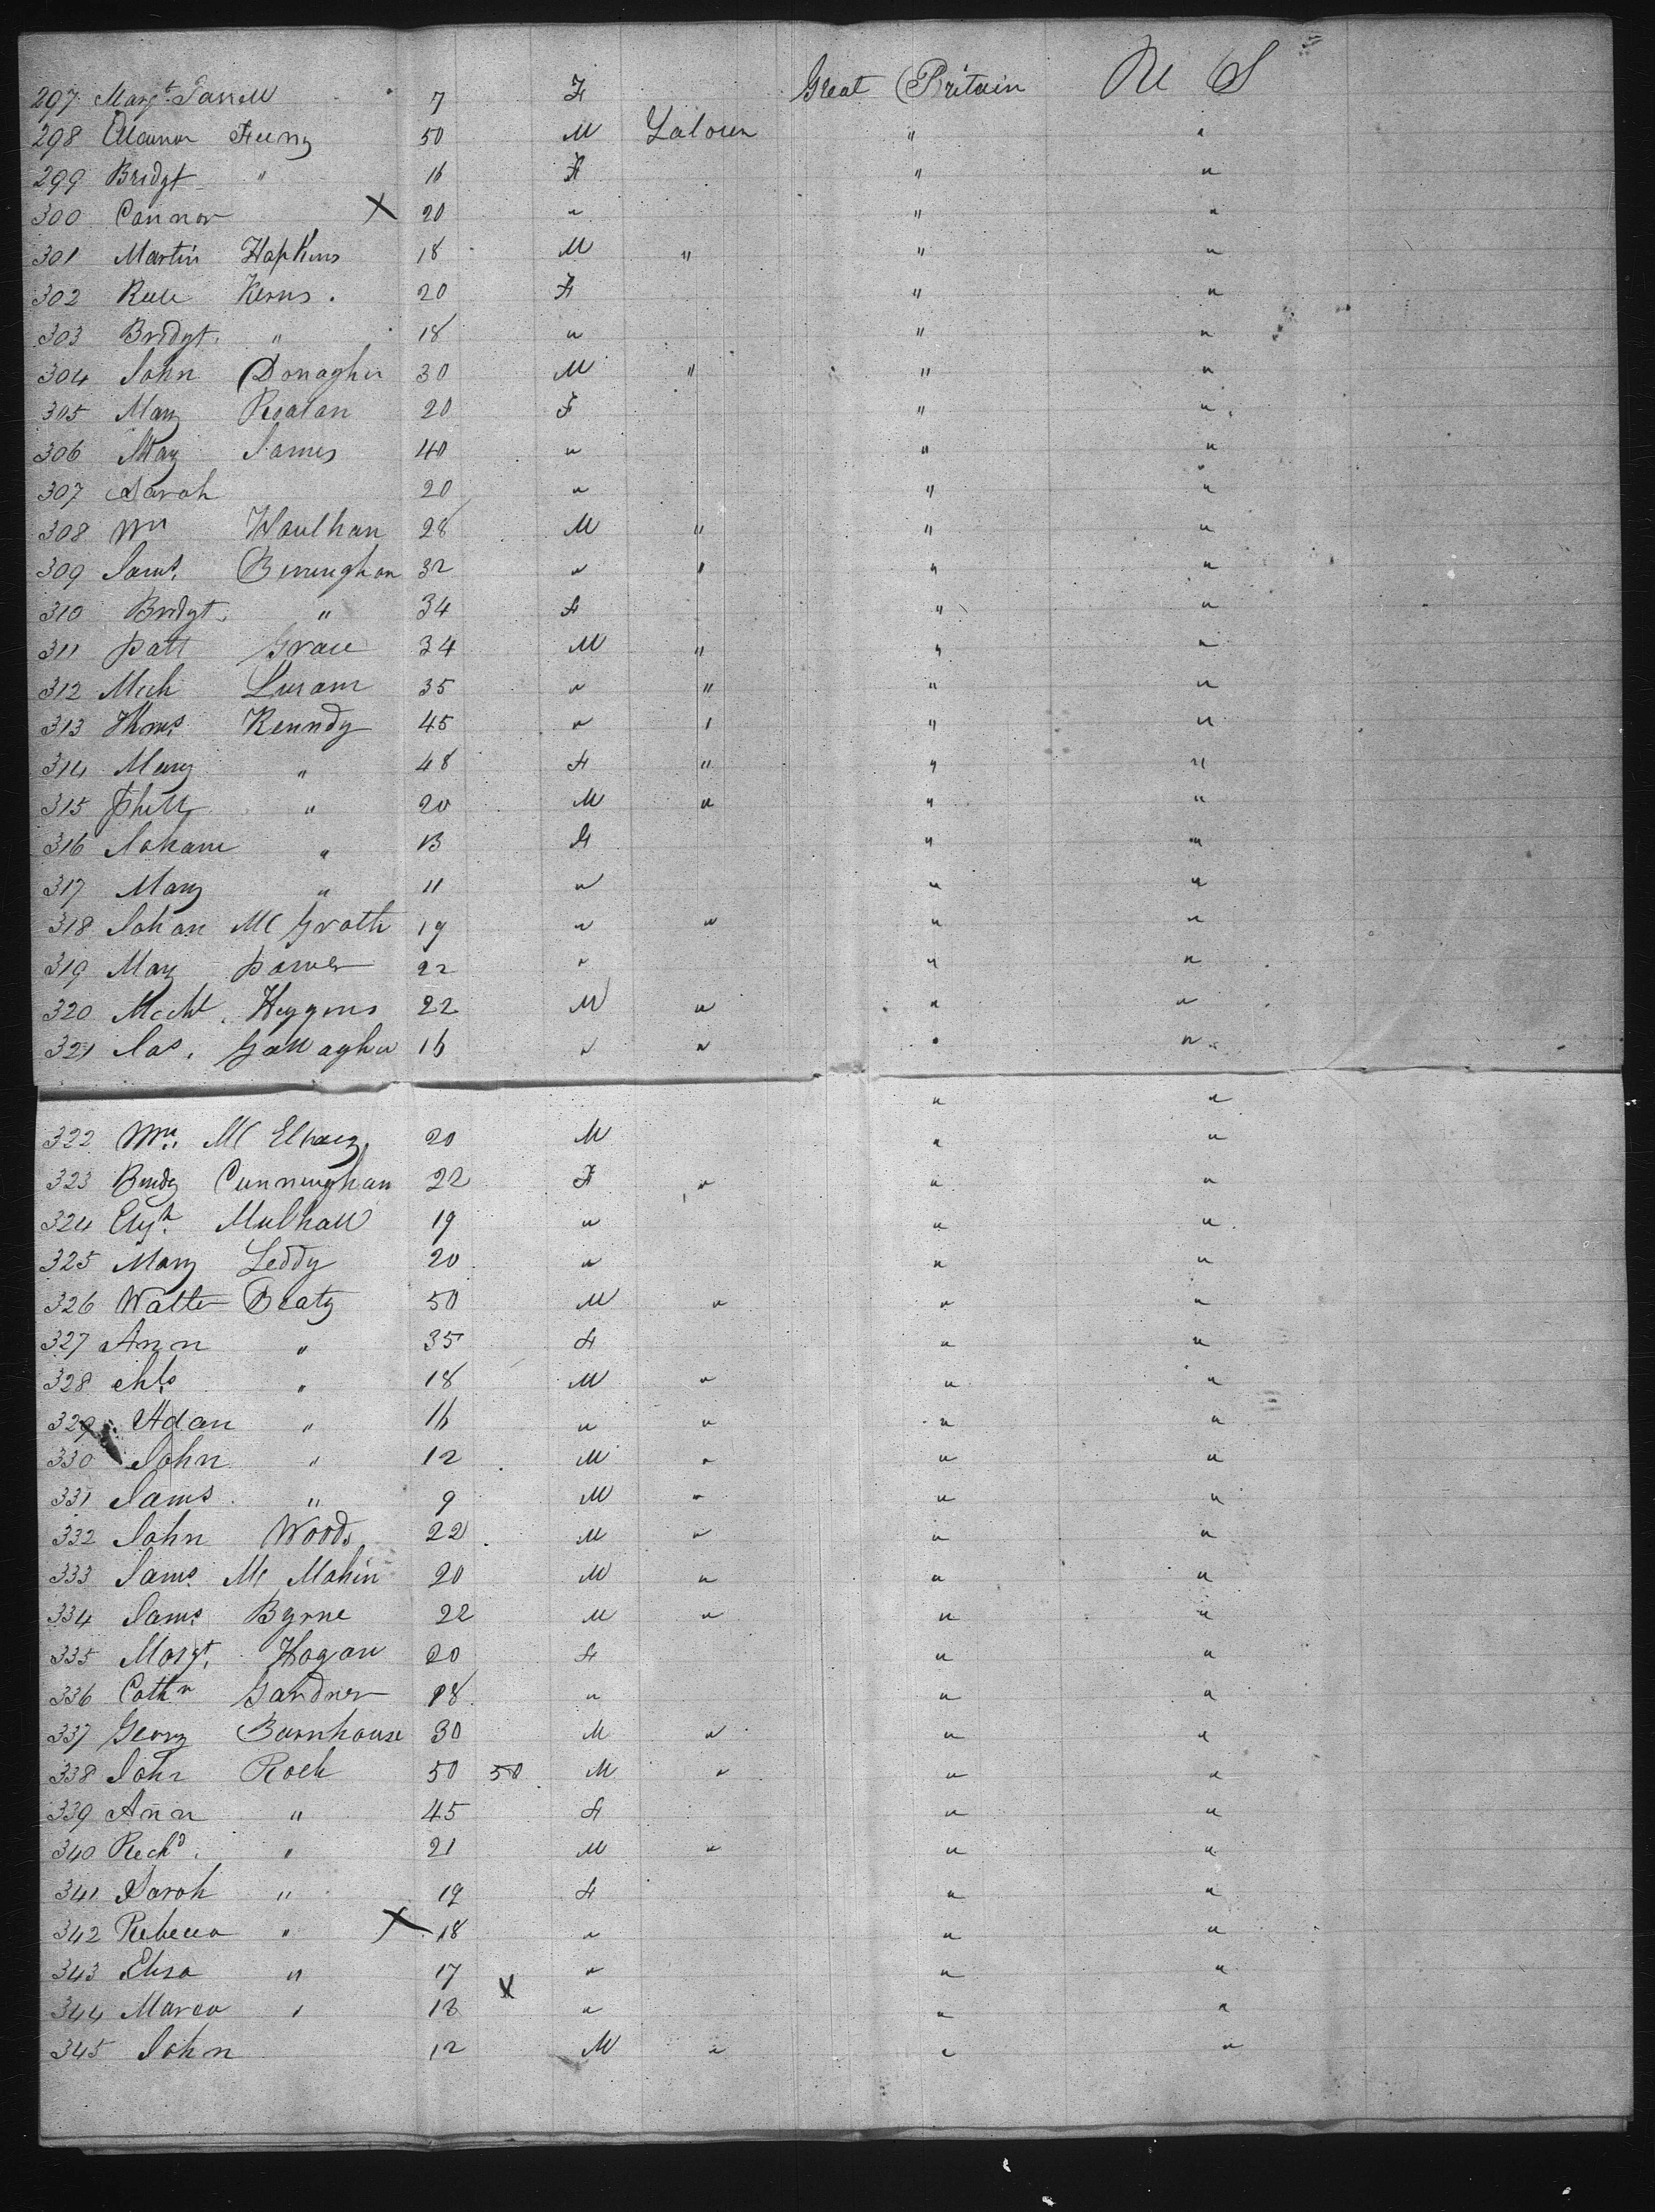 297 Margt Farrell 7 F Great Britain U S
298 Eleanor Feeny 50 M Laborer " "
299 Bridgt " 16 F " "
300 Connor X 20 " " "
301 Martin Hopkins 18 M " " "
302 Kerns. 20 F " "
303 Bridgt. " 18 " " "
304 John Donagher 30 M " " "
305 Mary 20 F " "
306 Mary James 40 " " "
307 Sarah 20 " " "
308 Wm Houlhan 28 M " " "
309 Jams. Birmingham 32 " " " "
310 Bridgt. " 34 F " "
311 Patt Grace 34 M " " "
312 Mich 35 " " " "
313 Thms. Kenndy 45 " " " "
314 Mary " 48 F " " "
315 Phill " 20 M " " "
316 Johane " 13 F " "
317 Mary " 11 " " "
318 Johan Mc Grath 19 " " " "
319 Mary Power 22 " " "
320 Michl. Heggins 22 M " " "
321 Jas. Gallagher 16 " " " "
" "
322 Wm. Mc 20 M " "
323 Cunningham 22 F " " "
324 Elizh. Mulhall 19 " " "
325 Mary Leddy 20 " " "
326 Walter Beaty 50 M " " "
327 Ann " 35 F " "
328 Chls " 18 M " " "
329 Adam " 16 " " " "
330 John " 12 M " " "
331 Jams " 9 M " " "
332 John Woods 22 M " " "
333 Jams. Mc Mahin 20 M " " "
334 Jams. Byrne 22 M " " "
335 Margt. Hogan 20 F " "
336 Cathn Gardner 18 " " "
337 Georg Barnhouse 30 M " " "
338 John Roch 50 50 M " " "
339 Ann " 45 F " "
340 Richd. " 21 M " " "
341 Sarah " 19 F " "
342 Rebecca " X 18 " " "
343 Elisa " 17 X " " "
344 Maria " 13 " " "
345 John 12 M " " "